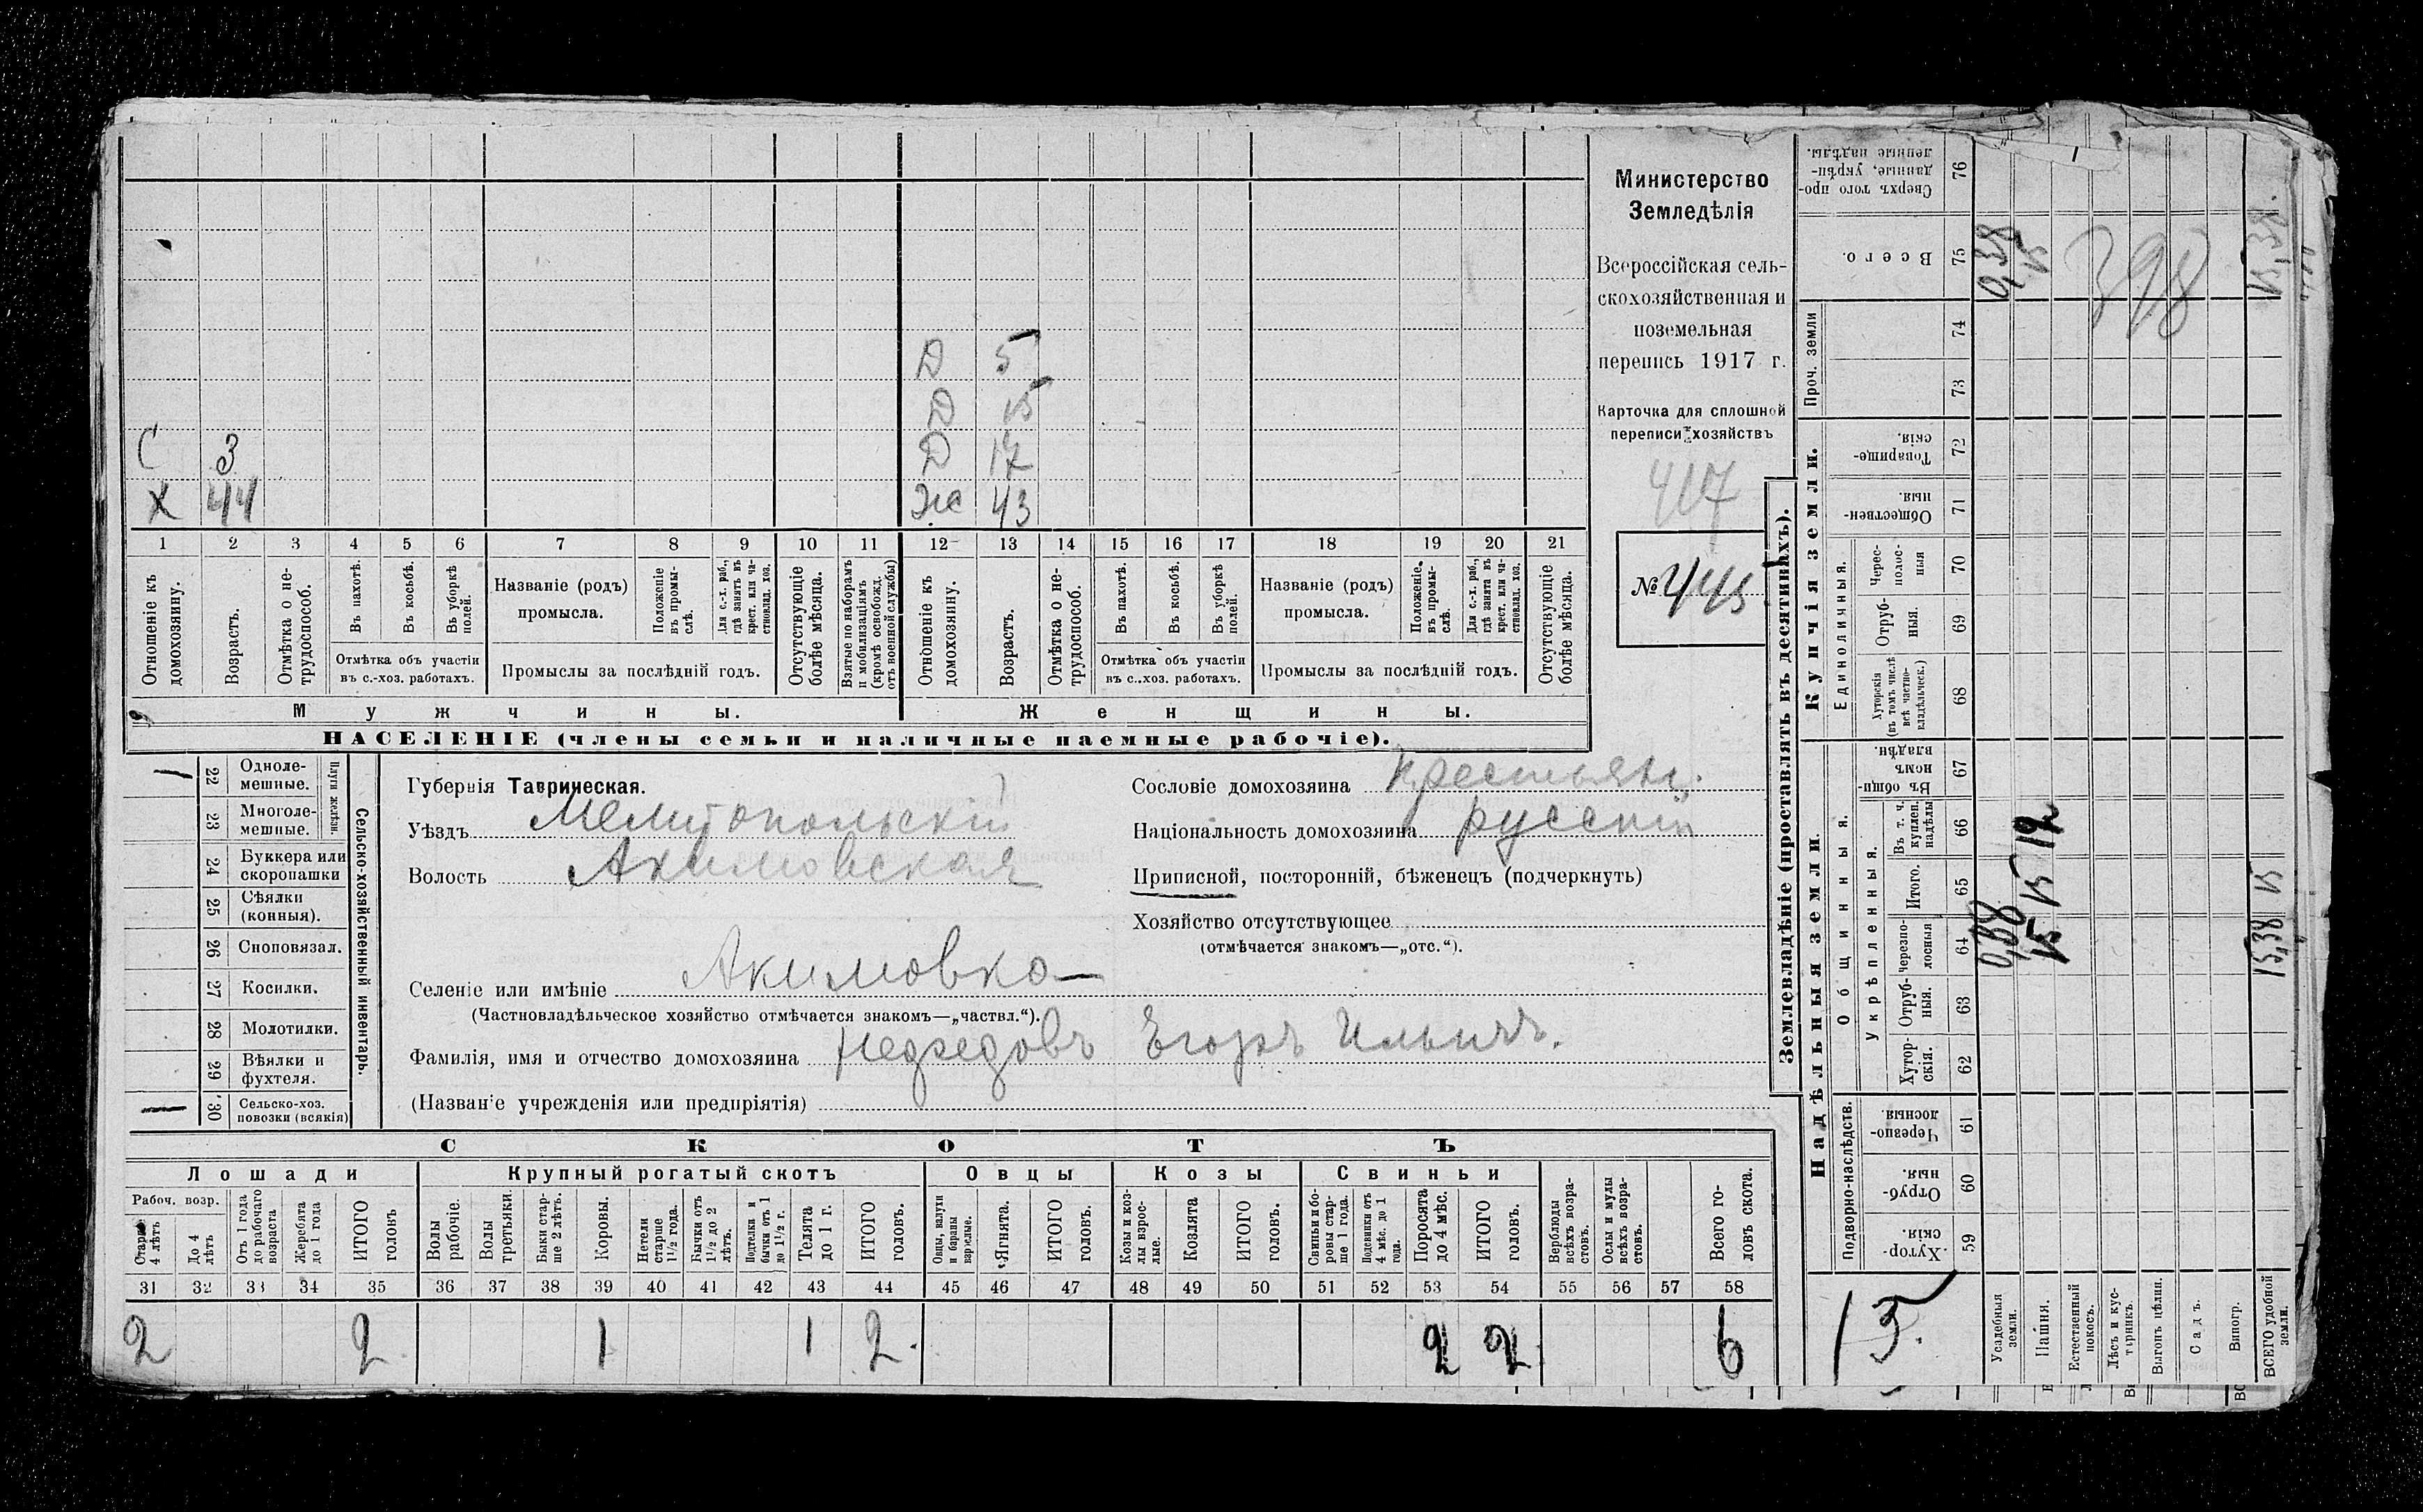 Д 5
Д 15
С 3 Д 17
Х 44 Ж 43
1 2 3 4 5 6 7 8 9 10 11 12 13 14 15 16 17 18 19 20 21
Отношеніе къ домохозяину.
Возрастъ.
Отмѣтка о не-
трудоспособ.
Въ пахотѣ.
Въ косьбѣ.
Въ уборкѣ
полей.
Отмѣтка объ участіи
въ с.-хоз. работахъ.
Названіе (родъ)
промысла.
Положеніе
въ промы-
слѣ.
Для с.-х. раб.,
гдѣ занятъ въ
крест. или ча-
стновлад. хоз.
Промыслы за послѣдній годъ.
Отсутствующіе
болѣе мѣсяца.
Взятые по наборамъ
и мобилизаціямъ
(кромѣ освобожд.
отъ военной службы)
Отношеніе къ
домохозяину.
Возрастъ.
Отмѣтка о не-
трудоспособ.
Въ пахотѣ.
Въ косьбѣ.
Въ уборкѣ
полей.
Отмѣтка объ участіи
въ с.-хоз. работахъ.
Названіе (родъ)
промысла.
Положеніе
въ промы-
слѣ.
Для с.-х. раб.,
гдѣ занята въ
крест. или ча-
стновлад. хоз.
Промыслы за послѣдній годъ.
Отсутствующіе
болѣе мѣсяца.
Мужчины. Женщины.
НАСЕЛЕНІЕ (члены семьи и наличные наемные рабочіе).
Министерство
Земледѣлія
Всероссійская сель-
скохозяйственная и
поземельная
перепись 1917 г.
Карточка для сплошной
переписи хозяйствъ
417
№ 445
22 Одноле-
мешные.
23 Многоле-
мешные.
Плуги желѣзн.
24 Буккера или
скоропашки
25 Сѣялки
(конныя).
26 Сноповязал.
27 Косилки.
28 Молотилки.
29 Вѣялки и
фухтеля.
30 Сельско-хоз.
повозки (всякія)
Сельско-хозяйственный инвентарь.
Губернія Таврическая.
Уѣздъ Мелитопольскій
Волость Акимовская
Селеніе или имѣніе Акимовка
(Частновладѣльческое хозяйство отмѣчается знакомъ—„частвл.“).
Фамилія, имя и отчество домохозяина Егоръ Ильичъ.
(Названіе учрежденія или предпріятія)
Сословіе домохозяина крестьян.
Національность домохозяина русскій
Приписной, посторонній, бѣженецъ (подчеркнуть)
Хозяйство отсутствующее
(отмѣчается знакомъ—„отс.“).
СКОТЪ
Лошади Крупный рогатый скотъ Овцы Козы Свиньи
Рабоч. возр.
Старше
4 лѣтъ
До 4
лѣтъ
Отъ 1 года
до рабочаго
возраста
Жеребята
до 1 года
ИТОГО
головъ
Волы
рабочіе.
Волы
третьяки.
Быки стар-
ше 2 лѣтъ.
Коровы.
Нетели
старше
1½ года.
Бычки отъ
1½ до 2
лѣтъ.
Подтелки и
бычки отъ 1
до 1½ г.
Телята
до 1 г.
ИТОГО
головъ.
Овцы, валухи
и бараны
взрослые.
Ягнята.
ИТОГО
головъ.
Козы и коз-
лы взрос-
лые.
Козлята
ИТОГО
головъ.
Свиньи и бо-
ровы стар-
ше 1 года.
Подсвинки отъ
4 мѣс. до 1
года.
Поросята
до 4 мѣс.
ИТОГО
головъ.
Верблюды
всѣхъ возра-
стовъ.
Ослы и мулы
всѣхъ возра-
стовъ.
Всего го-
ловъ скота.
31 32 33 34 35 36 37 38 39 40 41 42 43 44 45 46 47 48 49 50 51 52 53 54 55 56 57 58
2 2 1 1 2 2 2 6
Землевладѣніе (проставлять въ десятинахъ).
Надѣльныя земли. Купчія земли. Проч. земли
Подворно-наслѣдств. Общинныя. Единоличныя.
Укрѣпленныя.
59 Хутор-
скія.
60 Отруб-
ныя.
61 Черезпо-
лосныя
62 Хутор-
скія.
63 Отруб-
ныя.
64 Черезпо-
лосныя
65 Итого.
66 Въ т. ч.
куплен.
надѣлы
67 Въ общи-
номъ
владѣн.
68 Хуторскія
(въ томъ числѣ
всѣ частно-
владѣльческ.)
69 Отруб-
ныя.
70 Черес-
полос-
ныя
71 Обществен-
ныя.
72 Товарище-
скія.
73
74
75 Всего.
76 Сверхъ того про-
данные, укрѣп-
ленные надѣлы.
15.
Усадебныя
земли.
0,38 0,38
Пашня.
15 15 12 15
Естественный
покосъ.
Лѣсъ и кус-
тарникъ.
Выгонъ цѣлин.
Садъ.
Виногр.
ВСЕГО удобной
земли.
15,38 15 15,38
398